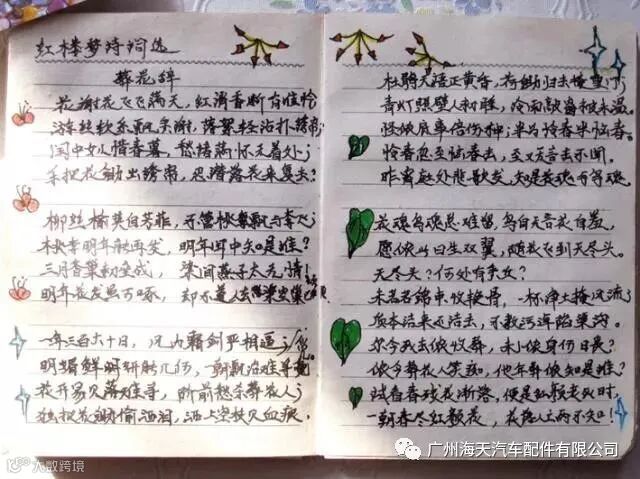 红楼梦诗词选
葬花辞
花谢花飞飞满天，红消香断有谁怜
游丝软系飘春榭，落絮轻沾扑绣帘
闺中女儿惜春暮，愁绪满怀无着处；
手把花锄出绣帘，忍踏落花来复去？
柳丝榆荚自芳菲，不管桃飘与李飞；
桃李明年能再发，明年闺中知是谁？
三月香巢初垒成，梁间燕子太无情！
明年花发虽可啄，却不道人去梁空巢
一年三百六十日，风刀霜剑严相逼；
明媚鲜妍能几何，一朝飘泊难寻觅
花开易见落难寻，阶前愁杀葬花人；
独把花锄偷洒泪，洒上空枝见血痕。
杜鹃无语正黄昏，荷锄归去掩重门；
青灯照壁人初睡，冷雨敲窗被未温。
怪侬底事倍伤神；半为怜春半恼春。
怜春忽至恼春去，至又无言去不闻。
昨宵庭外悲歌发，知是花魂与鸟魂。
花魂鸟魂总难留，鸟自无言花自羞，
愿侬此日生双翼，随花飞到天尽头。
天尽头？何处有香丘？
未若锦囊收艳骨，一抔净土掩风流；
质本洁来还洁去，不教污淖陷渠沟。
尔今死去侬收葬，未卜侬身何日丧？
侬今葬花人笑痴，他年葬侬知是谁？
试看春残花渐落，便是红颜老死时，
一朝春尽红颜老，花落人亡两不知！
广州海天汽车配件有限公司
大数跨境